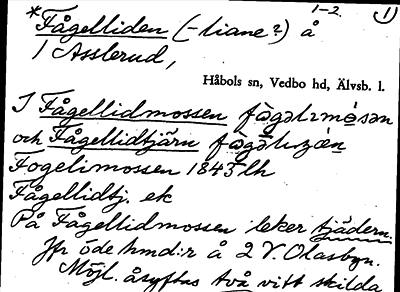 1-2. 1)
*Fågelliden (-liane?) å
1 Asslerud,
Håbols sn, Vedbo hd, Älvsb. l.
I Fågellidmossen
och Fågellidtjärn
Fogelimossen 1845 lh
Fågellidtj. ek
På Fågellidmossen leker tjädern.
Jfr ödehmd:r å 2 V. Olasbyn.
Möjl. åsyftas två vitt skilda